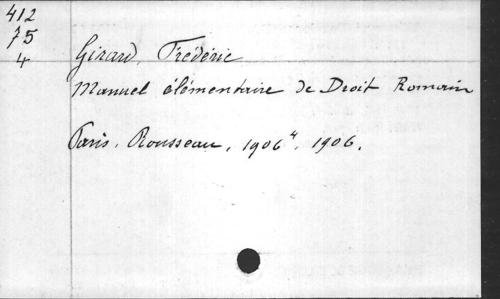 412
75
4
Girard, Frédéric
Manuel élémentaire de Droit Romain
Paris. Rousseau, 1906⁴. 1906.